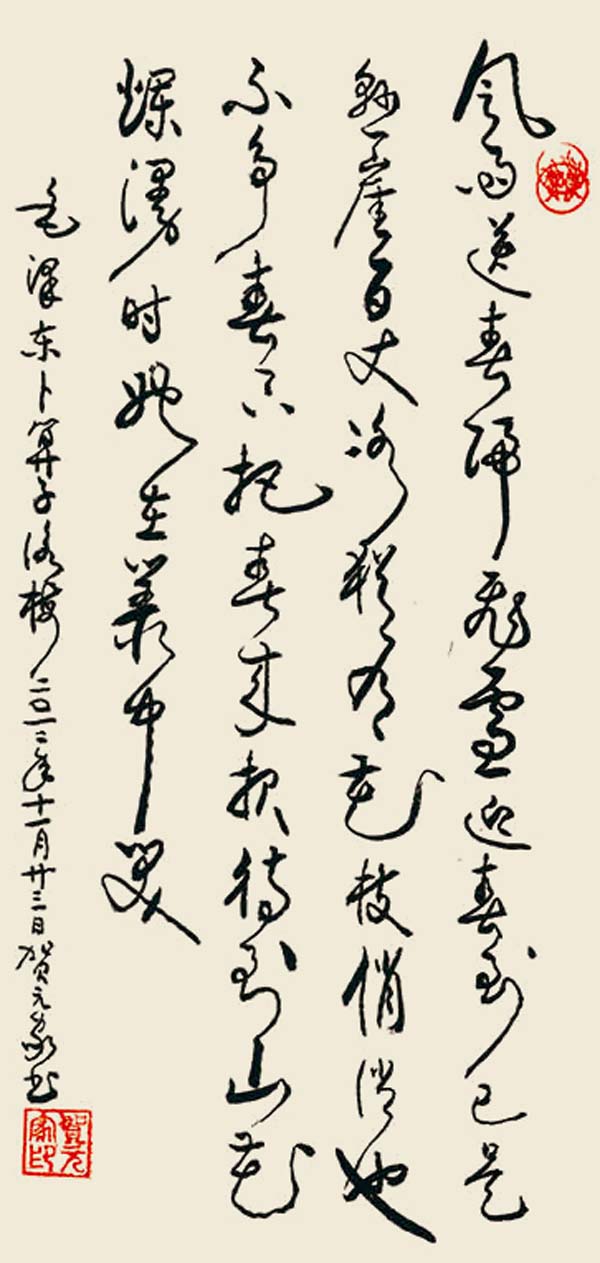 风雨送春归飞雪迎春到已是
悬崖百丈冰犹有花枝俏俏也
不争春只把春来报待到山花
烂漫时她在丛中笑
毛泽东卜算子咏梅二〇一二年十一月廿三日贺元家书
賀元家印